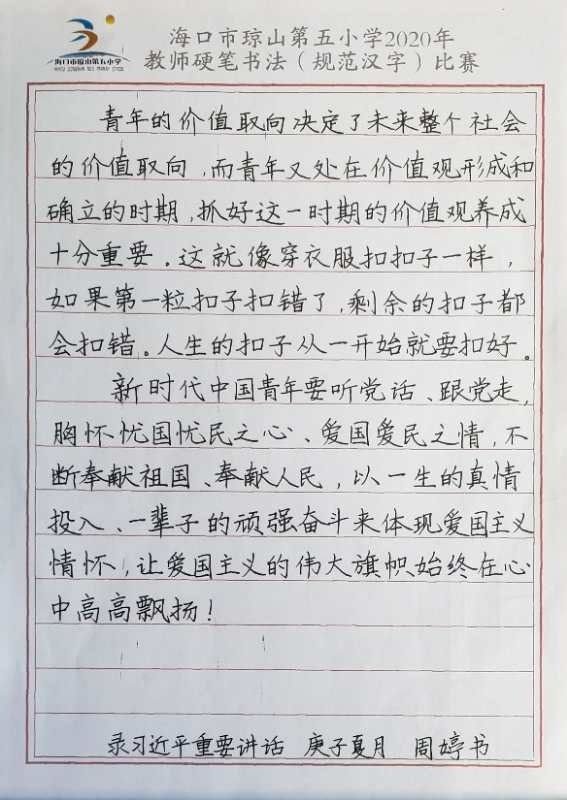 海口市琼山第五小学
海口市琼山第五小学2020年
教师硬笔书法（规范汉字）比赛
青年的价值取向决定了未来整个社会
的价值取向,而青年又处在价值观形成和
确立的时期,抓好这一时期的价值观养成
十分重要。这就像穿衣服扣扣子一样,
如果第一粒扣子扣错了,剩余的扣子都
会扣错。人生的扣子从一开始就要扣好。
新时代中国青年要听党话、跟党走,
胸怀忧国忧民之心、爱国爱民之情,不
断奉献祖国、奉献人民,以一生的真情
投入、一辈子的顽强奋斗来体现爱国主义
情怀,让爱国主义的伟大旗帜始终在心
中高高飘扬!
录习近平重要讲话 庚子夏月 周婷书